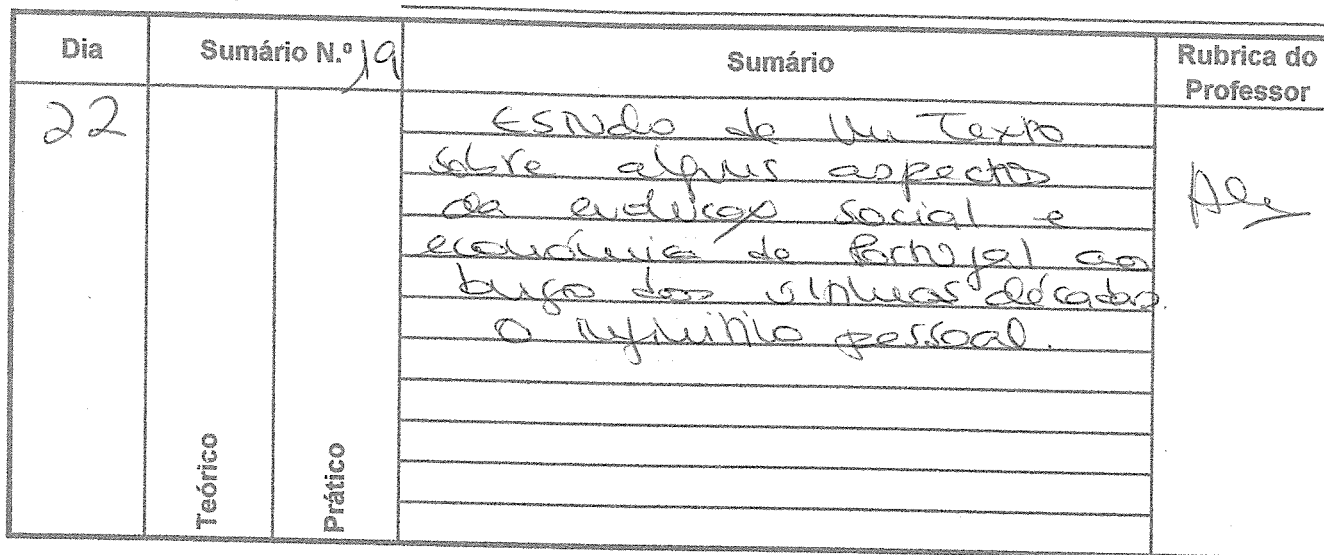 Dia
Sumário N.º 19
Sumário
Rubrica do
Professor
22
Estudo de um Texto
sobre alguns aspectos
da evolução social e
económica de Portugal ao
longo das últimas décadas.
O infinitivo pessoal.
Teórico
Prático